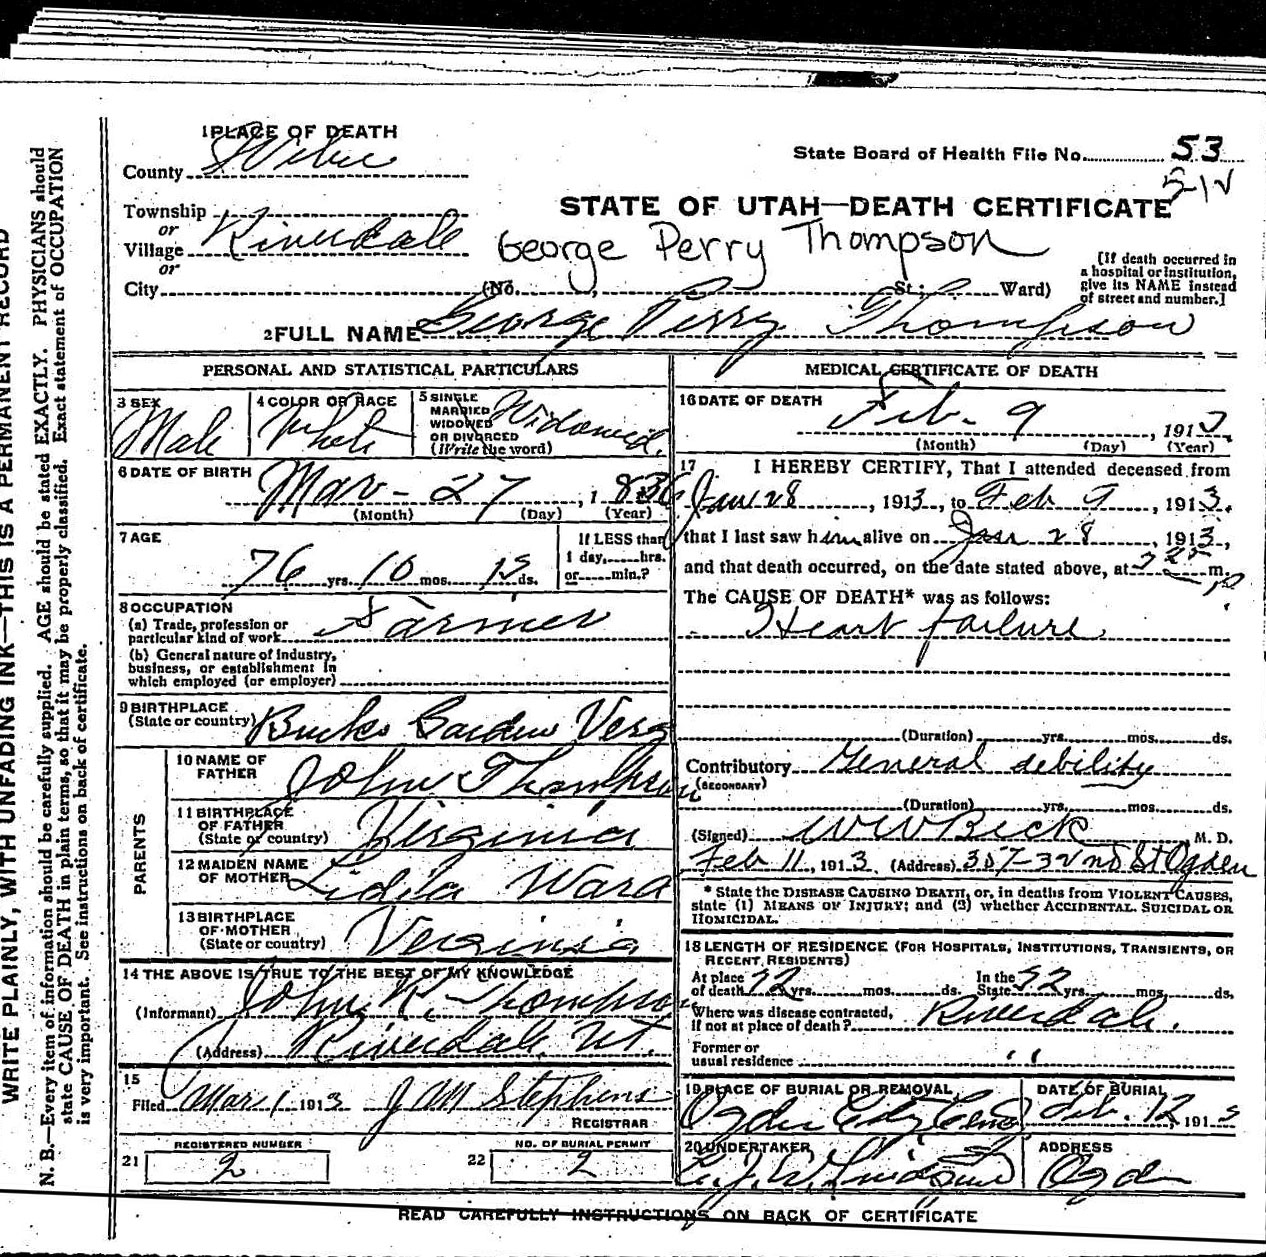 WRITE PLAINLY, WITH UNFADING INK—THIS IS A PERMANENT RECORD
N. B.—Every item of information should be carefully supplied. AGE should be stated EXACTLY. PHYSICIANS should
state CAUSE OF DEATH in plain terms, so that it may be properly classified. Exact statement of OCCUPATION
is very important. See instructions on back of certificate.
1 PLACE OF DEATH
County Weber
State Board of Health File No. 53
STATE OF UTAH—DEATH CERTIFICATE
Township
or
Village Riverdale
George Perry Thompson
or
City (No. , St.; Ward)
[If death occurred in
a hospital or institution,
give its NAME instead
of street and number.]
2 FULL NAME George Perry Thompson
PERSONAL AND STATISTICAL PARTICULARS
3 SEX
Male
4 COLOR OR RACE
White
5 SINGLE
MARRIED
WIDOWED
OR DIVORCED
(Write the word)
Widowed.
6 DATE OF BIRTH
Mar - 27, 1836
(Month) (Day) (Year)
7 AGE
76 yrs. 10 mos. 13 ds.
If LESS than
1 day, hrs.
or min.?
8 OCCUPATION
(a) Trade, profession or
particular kind of work Farmer
(b) General nature of industry,
business, or establishment in
which employed (or employer)
9 BIRTHPLACE
(State or country) Burks Garden Verg
PARENTS
10 NAME OF
FATHER John Thompson
11 BIRTHPLACE
OF FATHER
(State or country) Verginia
12 MAIDEN NAME
OF MOTHER Ward
13 BIRTHPLACE
OF MOTHER
(State or country) Verginia
14 THE ABOVE IS TRUE TO THE BEST OF MY KNOWLEDGE
(Informant) John R. Thompson
(Address) Riverdale, Ut.
15
Filed Mar 1 1913 J M Stephens
REGISTRAR
REGISTERED NUMBER
21 2
NO. OF BURIAL PERMIT
22 2
MEDICAL CERTIFICATE OF DEATH
16 DATE OF DEATH
Feb. 9, 1913
(Month) (Day) (Year)
17 I HEREBY CERTIFY, That I attended deceased from
Jan 28, 1913, to Feb 9, 1913,
that I last saw him alive on Jan 28, 1913,
and that death occurred, on the date stated above, at m.
The CAUSE OF DEATH* was as follows:
Heart failure
(Duration) yrs. mos. ds.
Contributory General debility
(SECONDARY)
(Duration) yrs. mos. ds.
(Signed) W W Rich M. D.
Feb 11, 1913. (Address) 357-32nd St Ogden
* State the DISEASE CAUSING DEATH, or, in deaths from VIOLENT CAUSES,
state (1) MEANS OF INJURY; and (2) whether ACCIDENTAL, SUICIDAL OR
HOMICIDAL.
18 LENGTH OF RESIDENCE (FOR HOSPITALS, INSTITUTIONS, TRANSIENTS, OR
RECENT RESIDENTS)
At place
of death yrs. mos. ds.
In the
State 52 yrs. mos. ds.
Where was disease contracted,
if not at place of death? Riverdale.
Former or
usual residence " "
19 PLACE OF BURIAL OR REMOVAL
Ogden City Cem
DATE OF BURIAL
Feb. 12, 1913
20 UNDERTAKER
ADDRESS
Ogden
READ CAREFULLY INSTRUCTIONS ON BACK OF CERTIFICATE